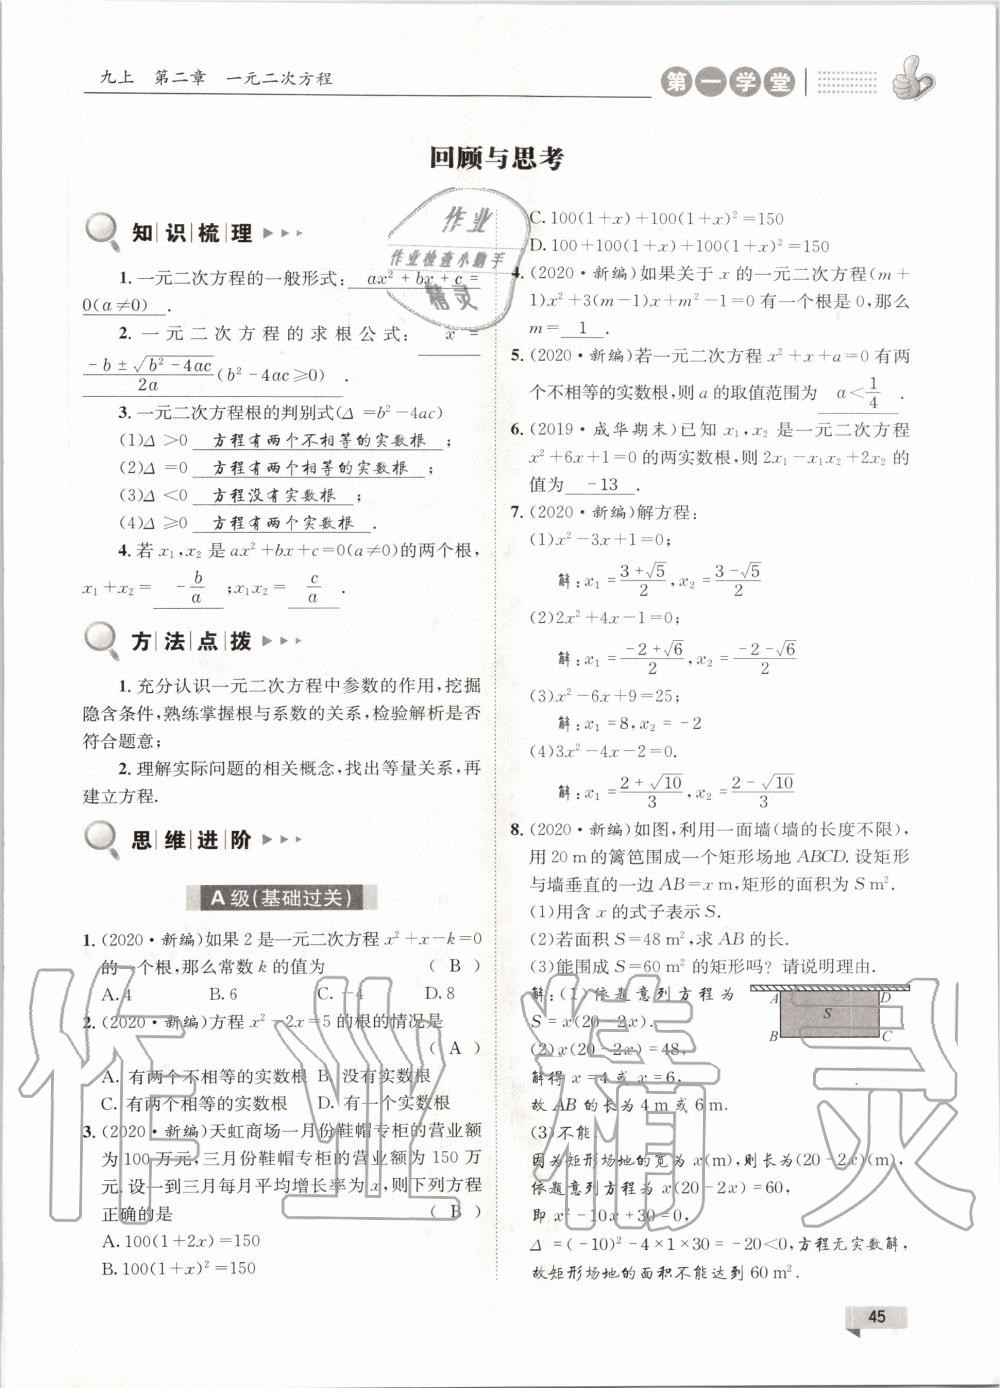 九上 第二章 一元二次方程
第一学堂
回顾与思考
知识梳理
1.一元二次方程的一般形式: ax²+bx+c=
0(a≠0).
2.一元二次方程的求根公式: x=
(-b±√(b²-4ac))/(2a) (b²-4ac≥0).
3.一元二次方程根的判别式(Δ=b²-4ac)
(1)Δ>0 方程有两个不相等的实数根;
(2)Δ=0 方程有两个相等的实数根;
(3)Δ<0 方程没有实数根;
(4)Δ≥0 方程有两个实数根.
4.若x₁,x₂是ax²+bx+c=0(a≠0)的两个根,
x₁+x₂= -b/a ;x₁x₂= c/a .
方法点拨
1.充分认识一元二次方程中参数的作用,挖掘
隐含条件,熟练掌握根与系数的关系,检验解析是否
符合题意;
2.理解实际问题的相关概念,找出等量关系,再
建立方程.
思维进阶
A级(基础过关)
1.(2020·新编)如果2是一元二次方程x²+x-k=0
的一个根,那么常数k的值为 ( B )
A.4 B.6 C.-4 D.8
2.(2020·新编)方程x²-2x=5的根的情况是
( A )
A.有两个不相等的实数根 B.没有实数根
C.有两个相等的实数根 D.有一个实数根
3.(2020·新编)天虹商场一月份鞋帽专柜的营业额
为100万元,三月份鞋帽专柜的营业额为150万
元.设一到三月每月平均增长率为x,则下列方程
正确的是 ( B )
A.100(1+2x)=150
B.100(1+x)²=150
C.100(1+x)+100(1+x)²=150
D.100+100(1+x)+100(1+x)²=150
4.(2020·新编)如果关于x的一元二次方程(m+
1)x²+3(m-1)x+m²-1=0有一个根是0,那么
m= 1 .
5.(2020·新编)若一元二次方程x²+x+a=0有两
个不相等的实数根,则a的取值范围为 a<1/4 .
6.(2019·成华期末)已知x₁,x₂是一元二次方程
x²+6x+1=0的两实数根,则2x₁-x₁x₂+2x₂的
值为 -13 .
7.(2020·新编)解方程:
(1)x²-3x+1=0;
解:x₁=(3+√5)/2,x₂=(3-√5)/2
(2)2x²+4x-1=0;
解:x₁=(-2+√6)/2,x₂=(-2-√6)/2
(3)x²-6x+9=25;
解:x₁=8,x₂=-2
(4)3x²-4x-2=0.
解:x₁=(2+√10)/3,x₂=(2-√10)/3
8.(2020·新编)如图,利用一面墙(墙的长度不限),
用20 m的篱笆围成一个矩形场地ABCD.设矩形
与墙垂直的一边AB=x m,矩形的面积为S m².
(1)用含x的式子表示S.
(2)若面积S=48 m²,求AB的长.
(3)能围成S=60 m²的矩形吗?请说明理由.
解:(1)依题意列方程为
S=x(20-2x).
(2)x(20-2x)=48,
解得x=4或x=6,
故AB的长为4 m或6 m.
(3)不能.
因为矩形场地的宽为x(m),则长为(20-2x)(m),
依题意列方程为x(20-2x)=60,
即x²-10x+30=0,
Δ=(-10)²-4×1×30=-20<0,方程无实数解,
故矩形场地的面积不能达到60 m².
A D
S
B C
45
作业
作业检查小助手
精灵
作业精灵